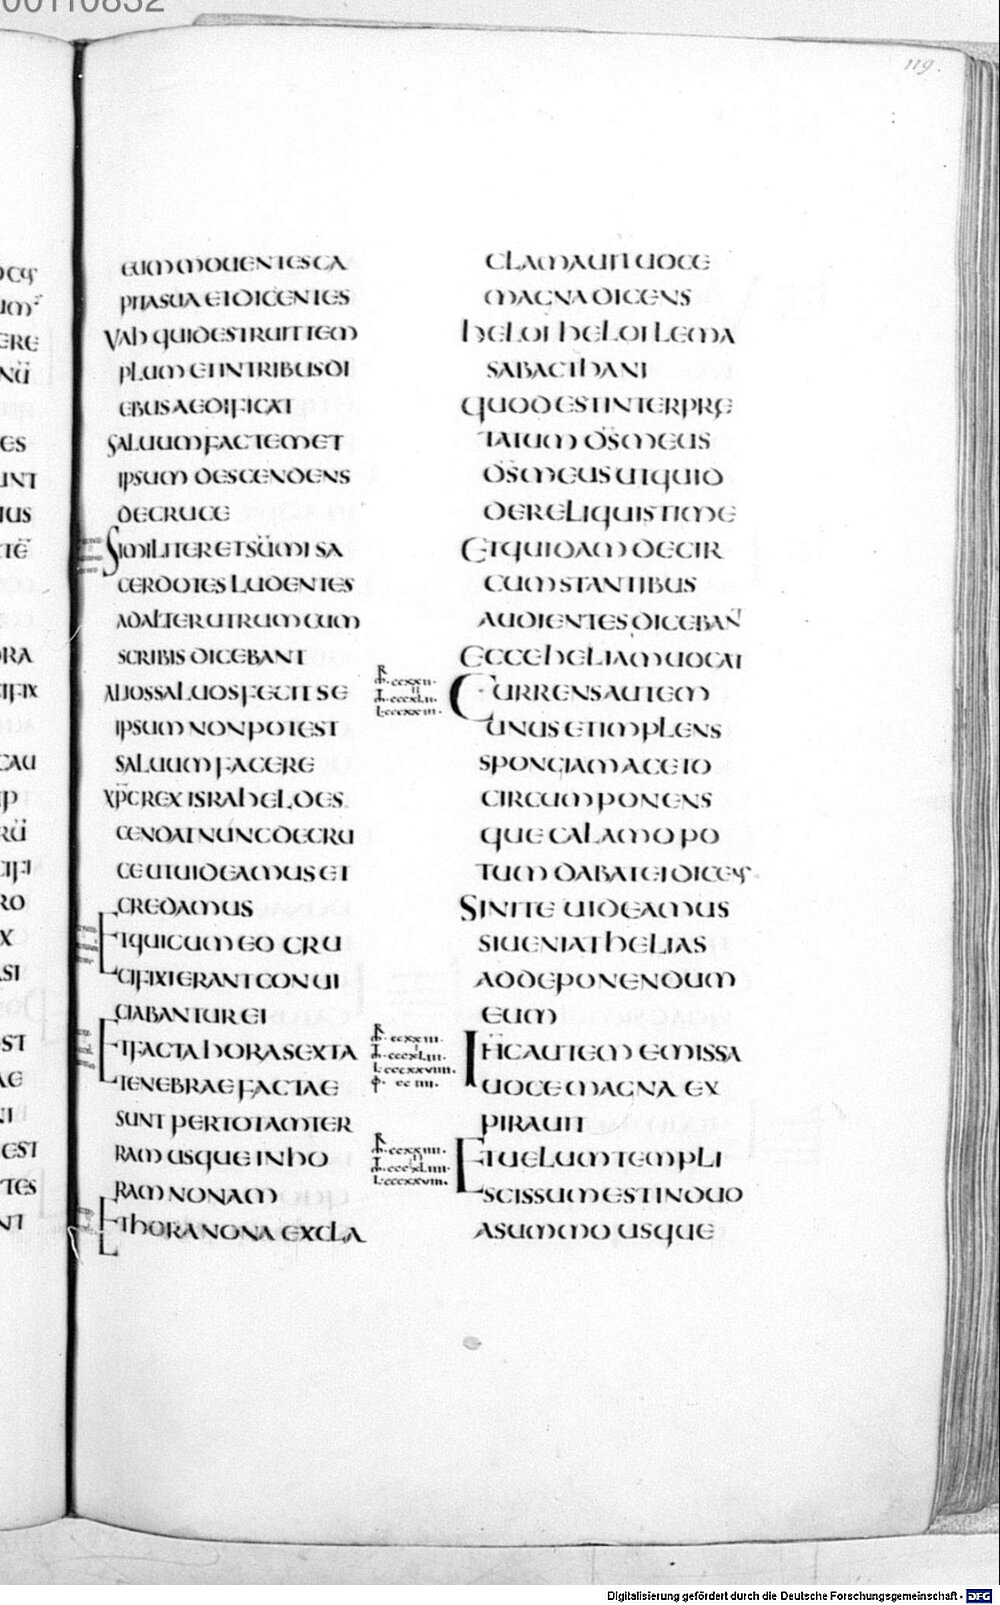 00110832
119.
EUM MOUENTES CA
PITA SUA ET DICENTES
VAH QUI DESTRUIT TEM
PLUM ET IN TRIBUS DI
EBUS AEDIFICAT
SALUUM FAC TEMET
IPSUM DESCENDENS
DE CRUCE
SIMILITER ET SŪMI SA
CERDOTES LUDENTES
AD ALTERUTRUM CUM
SCRIBIS DICEBANT
ALIOS SALUOS FECIT SE
IPSUM NON POTEST
SALUUM FACERE
XP̄C REX ISRAHEL DES
CENDAT NUNC DE CRU
CE UT UIDEAMUS ET
CREDAMUS
ET QUI CUM EO CRU
CIFIXI ERANT CONUI
CIABANTUR EI
ET FACTA HORA SEXTA
TENEBRAE FACTAE
SUNT PER TOTAM TER
RAM USQUE IN HO
RAM NONAM
ET HORA NONA EXCLA
CLAMAUIT UOCE
MAGNA DICENS
HELOI HELOI LEMA
SABACTHANI
QUOD EST INTERPRE
TATUM D̄S MEUS
D̄S MEUS UT QUID
DERELIQUISTI ME
ET QUIDAM DE CIR
CUMSTANTIBUS
AUDIENTES DICEBANT
ECCE HELIAM UOCAT
CURRENS AUTEM
UNUS ET IMPLENS
SPONGIAM ACETO
CIRCUMPONENS
QUE CALAMO PO
TUM DABAT EI DICENS
SINITE UIDEAMUS
SI UENIAT HELIAS
AD DEPONENDUM
EUM
IH̄C AUTEM EMISSA
UOCE MAGNA EX
PIRAUIT
ET UELUM TEMPLI
SCISSUM EST IN DUO
A SUMMO USQUE
Digitalisierung gefördert durch die Deutsche Forschungsgemeinschaft - DFG